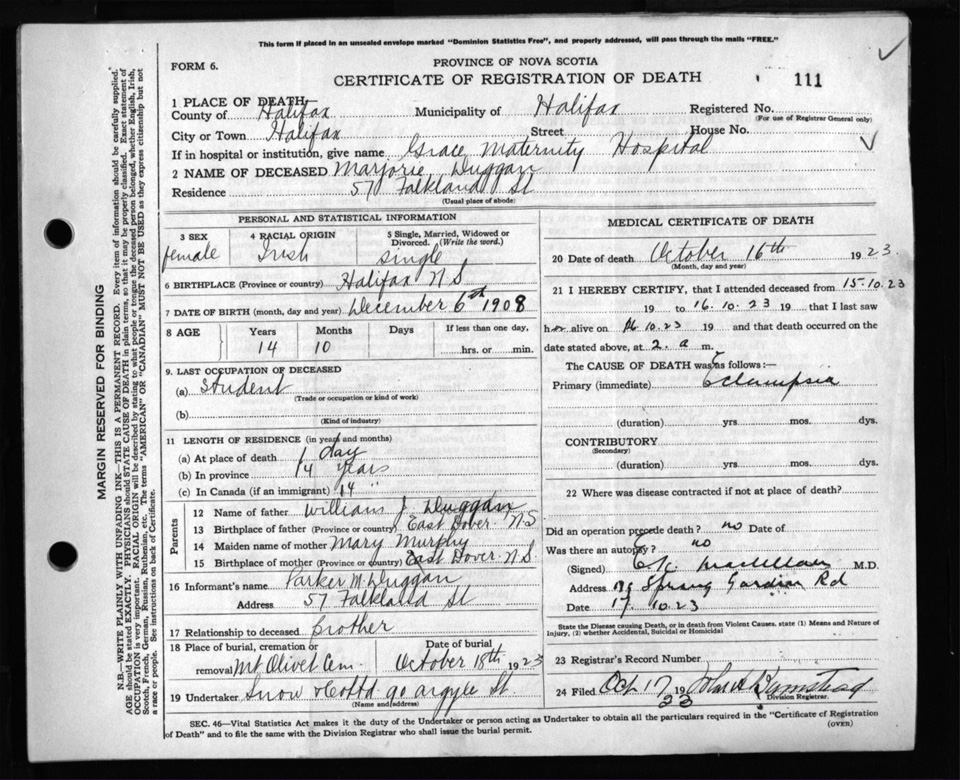 This form if placed in an unsealed envelope marked "Dominion Statistics Free", and properly addressed, will pass through the mails "FREE."
FORM 6.
PROVINCE OF NOVA SCOTIA
CERTIFICATE OF REGISTRATION OF DEATH
111
1 PLACE OF DEATH
County of Halifax Municipality of Halifax Registered No.
(For use of Registrar General only)
City or Town Halifax Street House No.
If in hospital or institution, give name Grace Maternity Hospital
2 NAME OF DECEASED Marjorie Duggan
Residence 57 Falkland St
(Usual place of abode)
PERSONAL AND STATISTICAL INFORMATION
3 SEX female
4 RACIAL ORIGIN Irish
5 Single, Married, Widowed or Divorced. (Write the word.) single
6 BIRTHPLACE (Province or country) Halifax N S
7 DATE OF BIRTH (month, day and year) December 6th 1908
8 AGE Years Months Days If less than one day,
14 10 hrs. or min.
9. LAST OCCUPATION OF DECEASED
(a) Student
(Trade or occupation or kind of work)
(b)
(Kind of industry)
11 LENGTH OF RESIDENCE (in years and months)
(a) At place of death 1 day
(b) In province 14 years
(c) In Canada (if an immigrant) 14 "
Parents
12 Name of father William J. Duggan
13 Birthplace of father (Province or country) East Dover. N S
14 Maiden name of mother Mary Murphy
15 Birthplace of mother (Province or country) East Dover. N.S.
16 Informant's name Parker M. Duggan
Address 57 Falkland St
17 Relationship to deceased brother
18 Place of burial, cremation or removal Mt Olivet Cem. Date of burial October 18th 1923
19 Undertaker Snow & Co Ltd 90 Argyle St
(Name and address)
MEDICAL CERTIFICATE OF DEATH
20 Date of death October 16th 1923.
(Month, day and year)
21 I HEREBY CERTIFY, that I attended deceased from 15-10.23
19 to 16.10.23 19 that I last saw
her alive on 16.10.23 19 and that death occurred on the
date stated above, at 2. a m.
The CAUSE OF DEATH was as follows:—
Primary (immediate) Eclampsia
(duration) yrs. mos. dys.
CONTRIBUTORY
(Secondary)
(duration) yrs. mos. dys.
22 Where was disease contracted if not at place of death?
Did an operation precede death? no Date of
Was there an autopsy? no
(Signed) M.D.
Address Spring Garden Rd
Date 17. 10.23
State the Disease causing Death, or in death from Violent Causes. state (1) Means and Nature of Injury, (2) whether Accidental, Suicidal or Homicidal
23 Registrar's Record Number
24 Filed Oct 17 19 23
Division Registrar.
SEC. 46—Vital Statistics Act makes it the duty of the Undertaker or person acting as Undertaker to obtain all the particulars required in the "Certificate of Registration of Death" and to file the same with the Division Registrar who shall issue the burial permit.
(OVER)
MARGIN RESERVED FOR BINDING
N.B.—WRITE PLAINLY WITH UNFADING INK—THIS IS A PERMANENT RECORD. Every item of information should be carefully supplied.
AGE should be stated EXACTLY. PHYSICIANS should STATE CAUSE OF DEATH in plain terms, so that it may be properly classified. Exact statement of
OCCUPATION is very important. RACIAL ORIGIN will be described by stating to what people or tongue the deceased person belonged, whether English, Irish,
Scotch, French, German, Russian, Ruthenian, etc. The terms "AMERICAN" or "CANADIAN" MUST NOT BE USED as they express citizenship but not
a race or people. See instructions on back of Certificate.